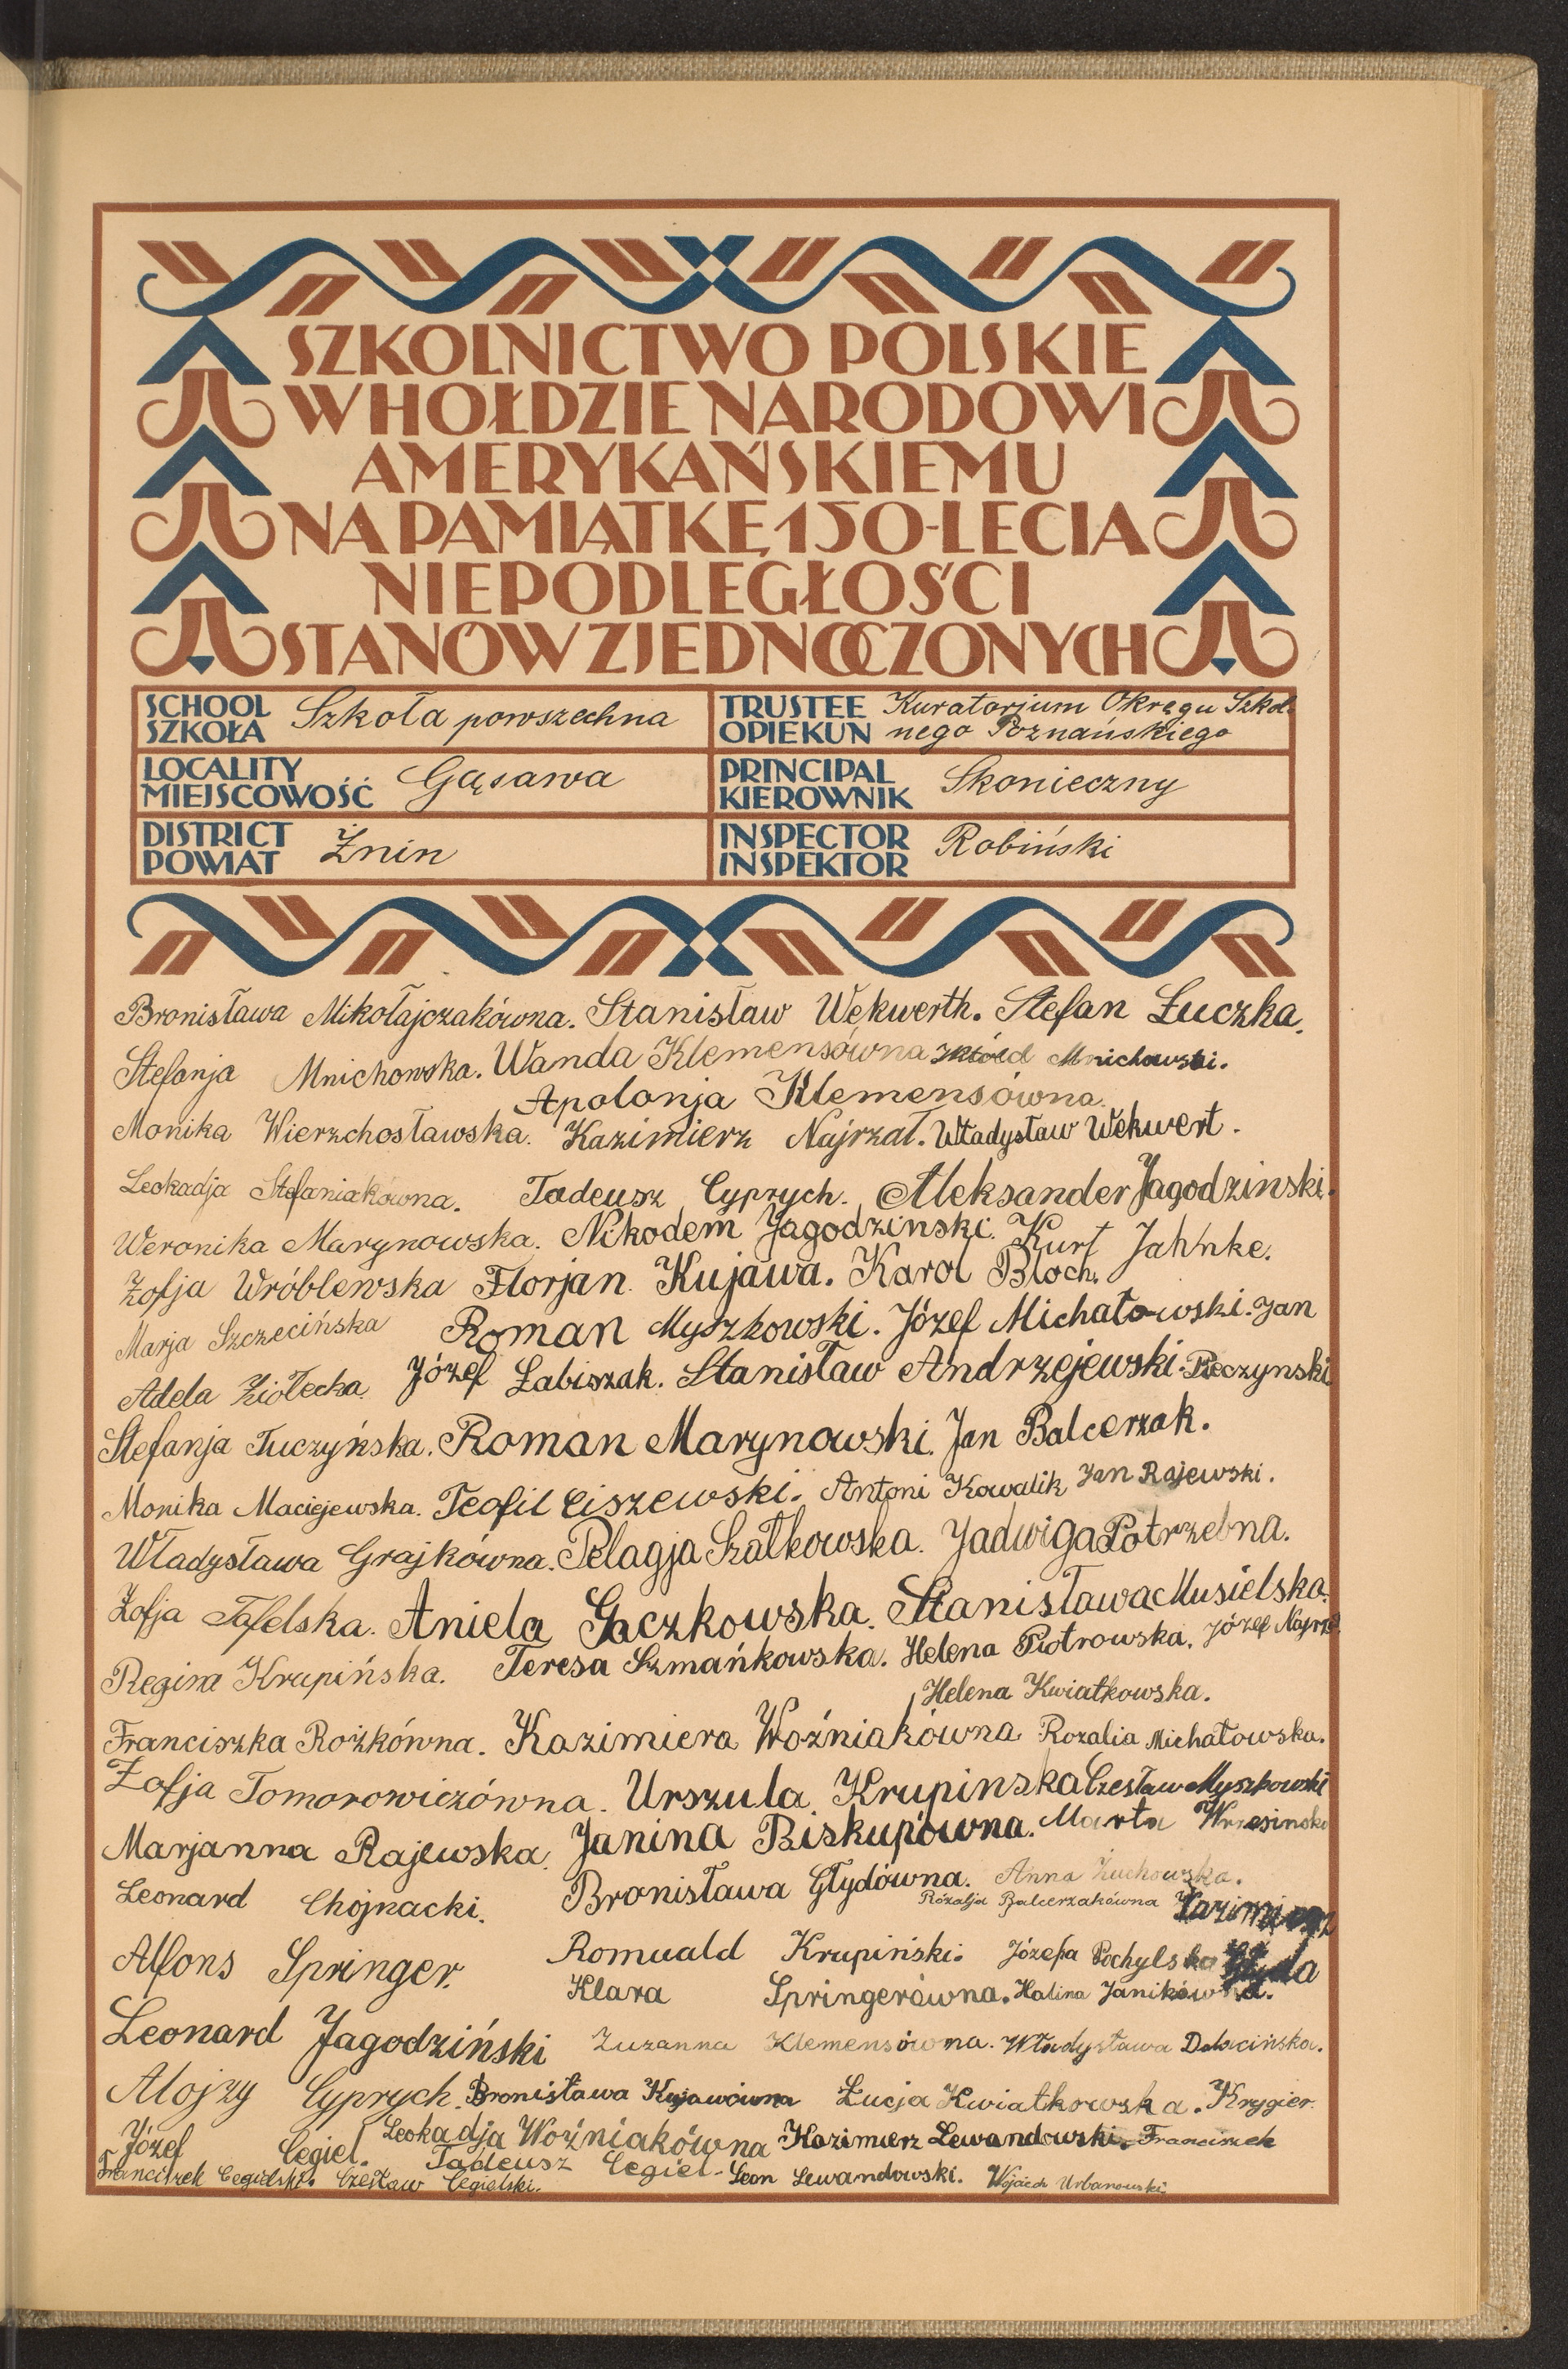 SZKOLNICTWO POLSKIE
W HOŁDZIE NARODOWI
AMERYKAŃSKIEMU
NA PAMIĄTKĘ 150-LECIA
NIEPODLEGŁOŚCI
STANÓW ZJEDNOCZONYCH
SCHOOL SZKOŁA Szkoła powszechna
TRUSTEE OPIEKUN Kuratorjum Okręgu Szkol-
nego Poznańskiego
LOCALITY MIEJSCOWOŚĆ Gąsawa
PRINCIPAL KIEROWNIK Skonieczny
DISTRICT POWIAT Żnin
INSPECTOR INSPEKTOR Robiński
Bronisława Mikołajczakówna. Stanisław Wekwerth. Stefan Łuczka.
Stefanja Mnichowska. Wanda Klemensówna Mnichowski.
Apolonja Klemensówna.
Monika Wierzchosławska. Kazimierz Najrzał. Władysław Wekwert.
Leokadja Stefaniakówna. Tadeusz Cyprych. Aleksander Jagodzinski.
Weronika Marynowska. Nikodem Jagodzinski. Kurt Jahnke.
Zofja Wróblewska Florjan Kujawa. Karol Bloch.
Marja Szczecińska Roman Myszkowski. Józef Michałowski. Jan
Adela Ziółecka Józef Łabiszak. Stanisław Andrzejewski. Pieczynski
Stefanja Tuczyńska. Roman Marynowski. Jan Balcerzak.
Monika Maciejewska. Teofil Ciszewski. Antoni Kowalik Jan Rajewski.
Władysława Grajkówna. Pelagja Szatkowska. Jadwiga Potrzebna.
Zofja Tafelska. Aniela Gaczkowska. Stanisława Musielska.
Regina Krupińska. Teresa Szmańkowska. Helena Piotrowska. Józef
Helena Kwiatkowska.
Franciszka Rożkówna. Kazimiera Woźniakówna Rozalia Michałowska.
Zofja Tomorowiczówna. Urszula Krupinska Czesław Myszkowski
Marjanna Rajewska. Janina Biskupówna. Marta
Leonard Chojnacki. Bronisława Głydówna. Anna Żuchowska.
Rózalja Balcerzakówna Kazimierz
Alfons Springer. Romuald Krupiński. Józefa Pochylska Głyda
Klara Springerówna. Halina Janikówna.
Leonard Jagodziński Zuzanna Klemensówna. Władysława
Alojzy Cyprych. Bronisława Kujawówna Łucja Kwiatkowska. Krygier.
Józef Cegiel. Leokadja Woźniakówna Kazimierz Lewandowski. Franciszek
Franciszek Cegielski. Czesław Cegielski. Tadeusz Cegiel. Leon Lewandowski. Wojciech Urbanowski